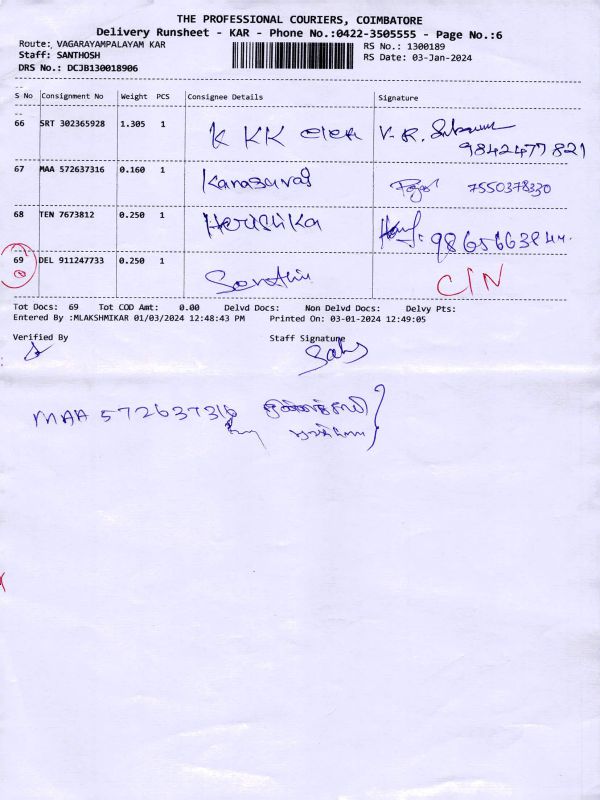 THE PROFESSIONAL COURIERS, COIMBATORE
Delivery Runsheet - KAR - Phone No.:0422-3505555 - Page No.:6
Route: VAGARAYAMPALAYAM KAR RS No.: 1300189
Staff: SANTHOSH RS Date: 03-Jan-2024
DRS No.: DCJB130018906
S No Consignment No Weight PCS Consignee Details Signature
66 SRT 302365928 1.305 1 K KK V. R.
9842477821
67 MAA 572637316 0.160 1 Kanagaraj 7550378330
68 TEN 7673812 0.250 1 Herishika
69 DEL 911247733 0.250 1 C/N
Tot Docs: 69 Tot COD Amt: 0.00 Delvd Docs: Non Delvd Docs: Delvy Pts:
Entered By :MLAKSHMIKAR 01/03/2024 12:48:43 PM Printed On: 03-01-2024 12:49:05
Verified By Staff Signature
MAA 572637316